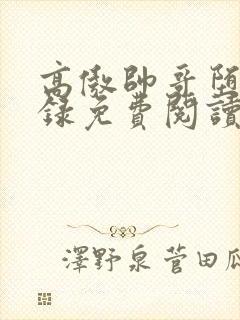 高傲帥哥墮
錄免費閱讀
澤野泉菅田瓜